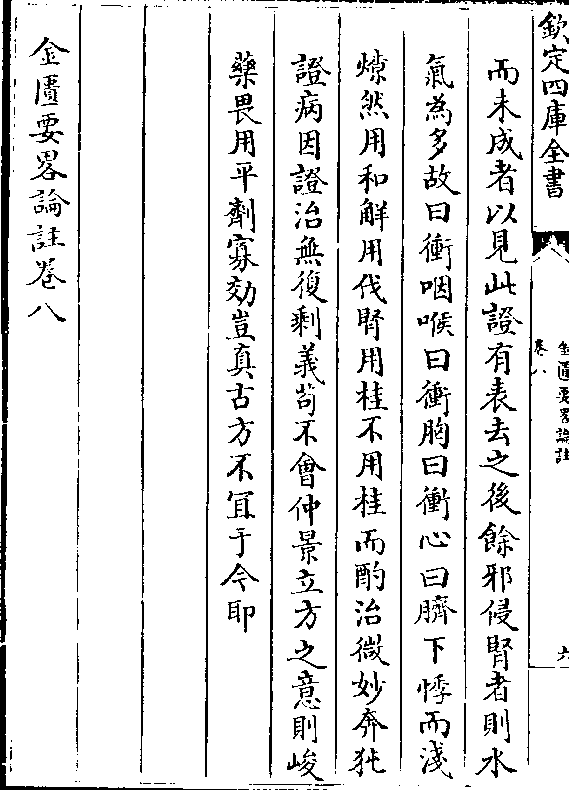 欽定四庫全書
金匱要畧論註
卷八
六
而未成者以見此證有表去之後餘邪侵腎者則水
氣為多故曰衝咽喉曰衝胸曰衝心曰臍下悸而淺
燎然用和解用伐腎用桂不用桂而酌治微妙奔㹠
證病因證治無復剩義茍不會仲景立方之意則峻
藥畏用平劑寡効豈真古方不冝于今耶
金匱要畧論註卷八